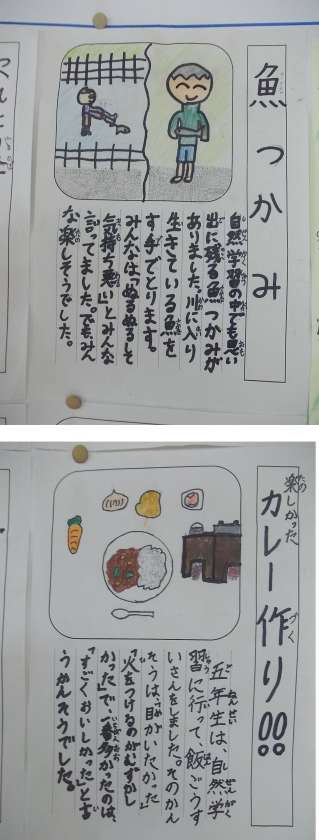 魚つかみ
自然学習の中でも思い
出に残る魚つかみが
ありました。川に入り
生きている魚を
す手でとります。
みんなは「ぬるぬるして
気持ち悪い」とみんな
言ってました。でも、みん
な楽しそうでした。
楽しかった
カレー作り!!
五年生は、自然学
習に行って、飯ごうす
いさんをしました。そのかん
そうは、「目がいたかった」
「火をつけるのがむずかし
かった」で、一番多かったのは、
「すごくおいしかった」と言
うかんそうでした。